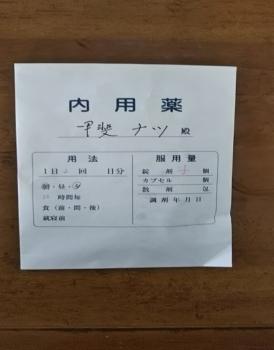 内用薬
甲斐 ナツ 殿
用法
1日2回 日分
朝・昼・夕
時間毎
食(前・間・後)
就寝前
服用量
錠剤 個
カプセル 個
散剤 包
調剤年月日